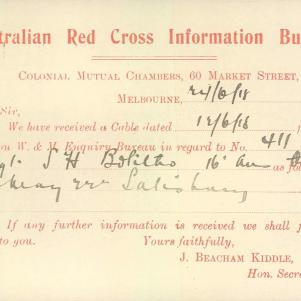 stralian Red Cross Information Bu
Colonial Mutual Chambers, 60 Market Street,
Melbourne, 24/6/18
Sir,
We have received a Cable dated 12/6/18
on W. & M. Enquiry Bureau in regard to No. 411
S H Bolitho 16 as fo
Salisbury
If any further information is received we shall f
to you. Yours faithfully,
J. BEACHAM KIDDLE,
Hon. Secre